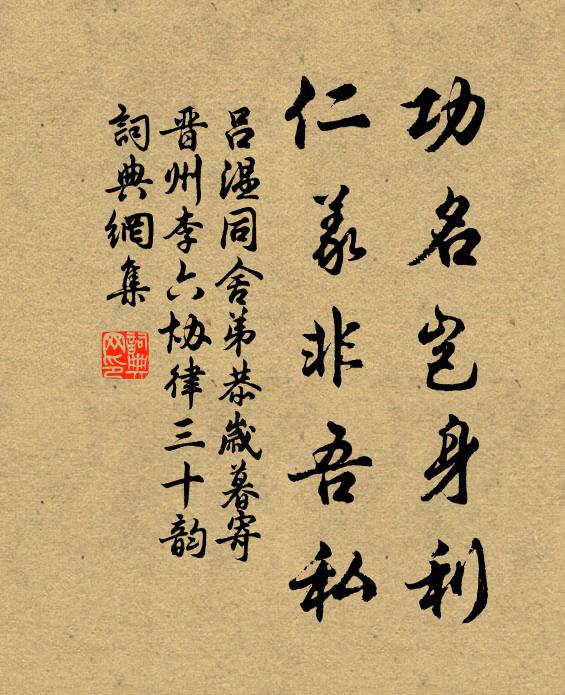 功名岂身利
仁義非吾私
吕温同舍弟恭歲暮寄
晋州李六协律三十韵
詞典網集
詞典
网印